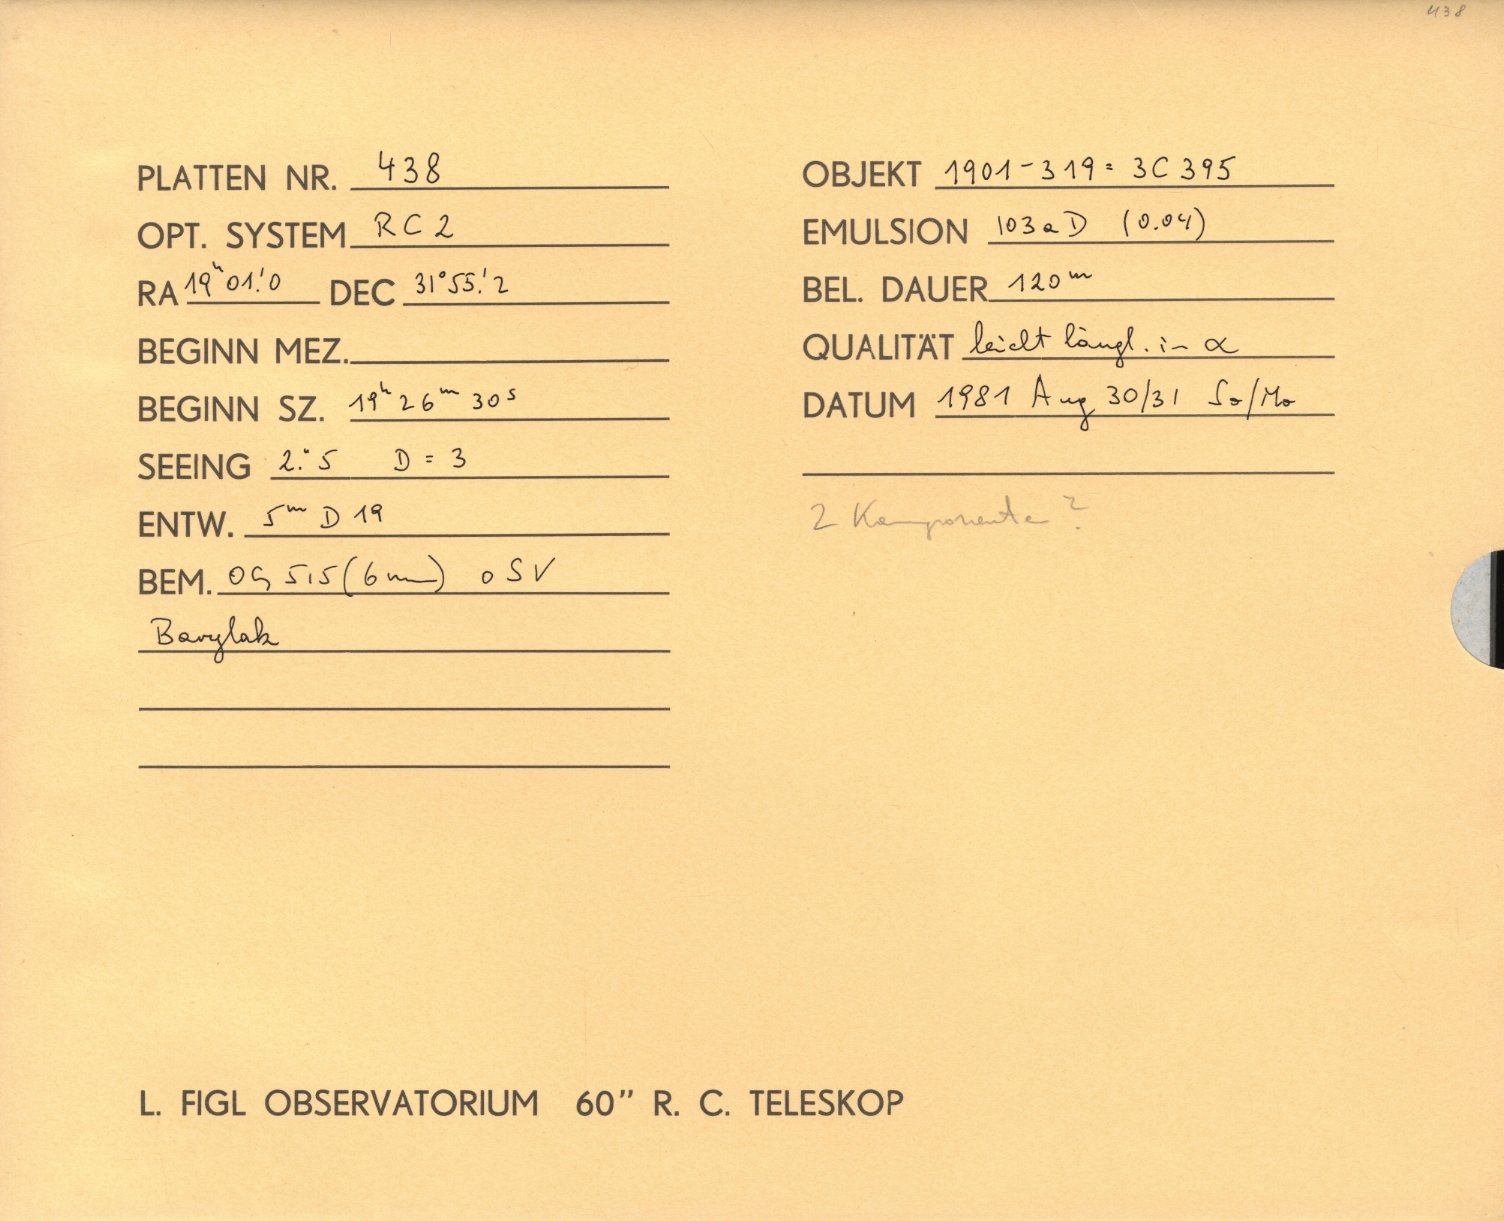 438
PLATTEN NR. 438
OPT. SYSTEM RC 2
RA 19ʰ01!0 DEC 31°55!2
BEGINN MEZ.
BEGINN SZ. 19ʰ 26ᵐ 30ˢ
SEEING 2."5 D = 3
ENTW. 5ᵐ D 19
BEM. OG 515 (6mm) o SV
OBJEKT 1901-319 = 3C 395
EMULSION 103aD (0.04)
BEL. DAUER 120ᵐ
QUALITÄT leicht längl. in α
DATUM 1981 Aug 30/31 So/Mo
2 Komponente ?
L. FIGL OBSERVATORIUM 60" R. C. TELESKOP